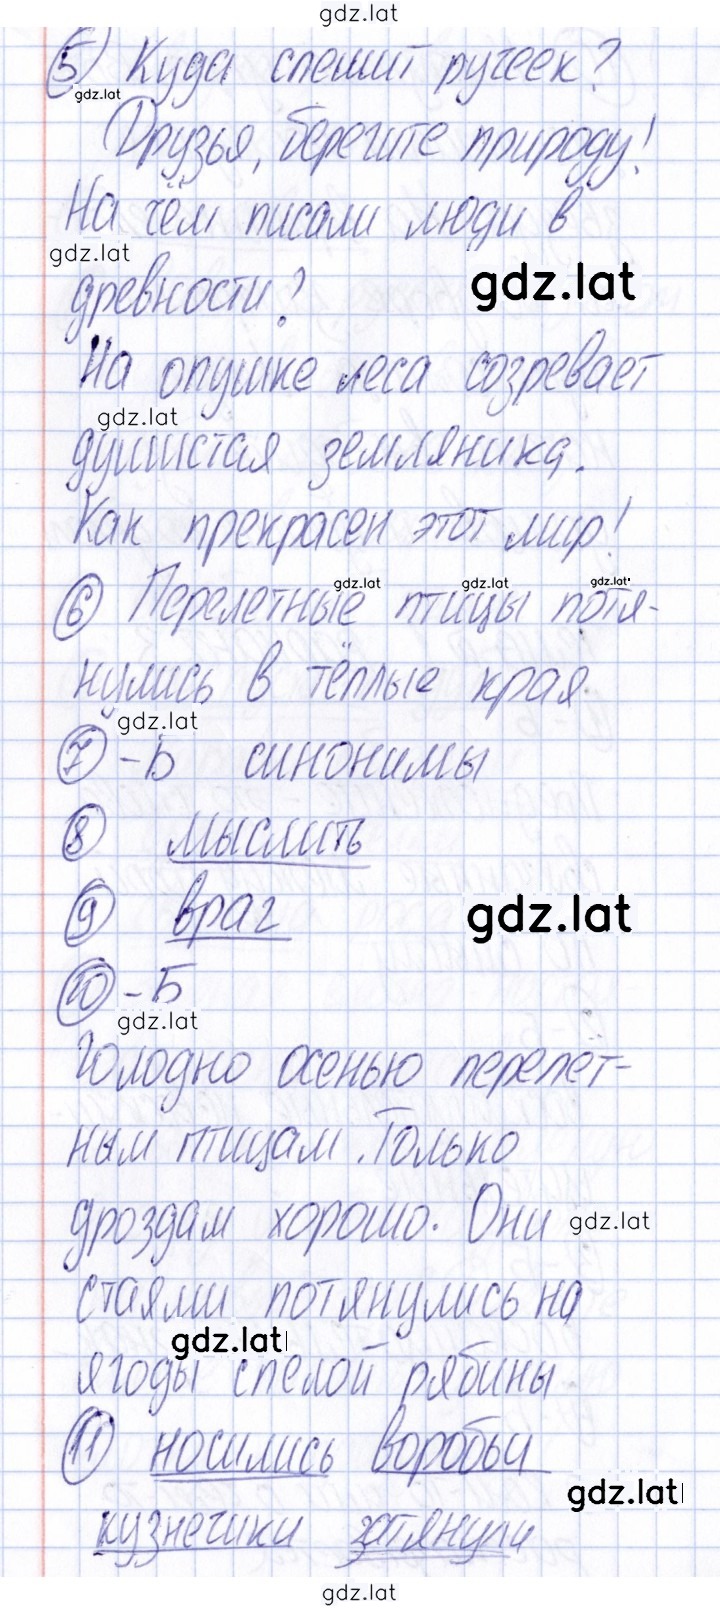 gdz.lat
5 Куда спешит ручеек?
gdz.lat
Друзья, берегите природу!
На чём писали люди в
gdz.lat
древности?
gdz.lat
На опушке леса созревает
gdz.lat
душистая земляника.
Как прекрасен этот мир!
gdz.lat gdz.lat gdz.lat
6 Перелетные птицы потя-
нулись в тёплые края
gdz.lat
7 -Б синонимы
8 мыслить
9 враг
gdz.lat
10 -Б
gdz.lat
Голодно осенью перелёт-
ным птицам. Только
дроздам хорошо. Они
gdz.lat
стаями потянулись на
gdz.lat
ягоды спелой рябины
11 носились воробьи
gdz.lat
кузнечики затянули
gdz.lat